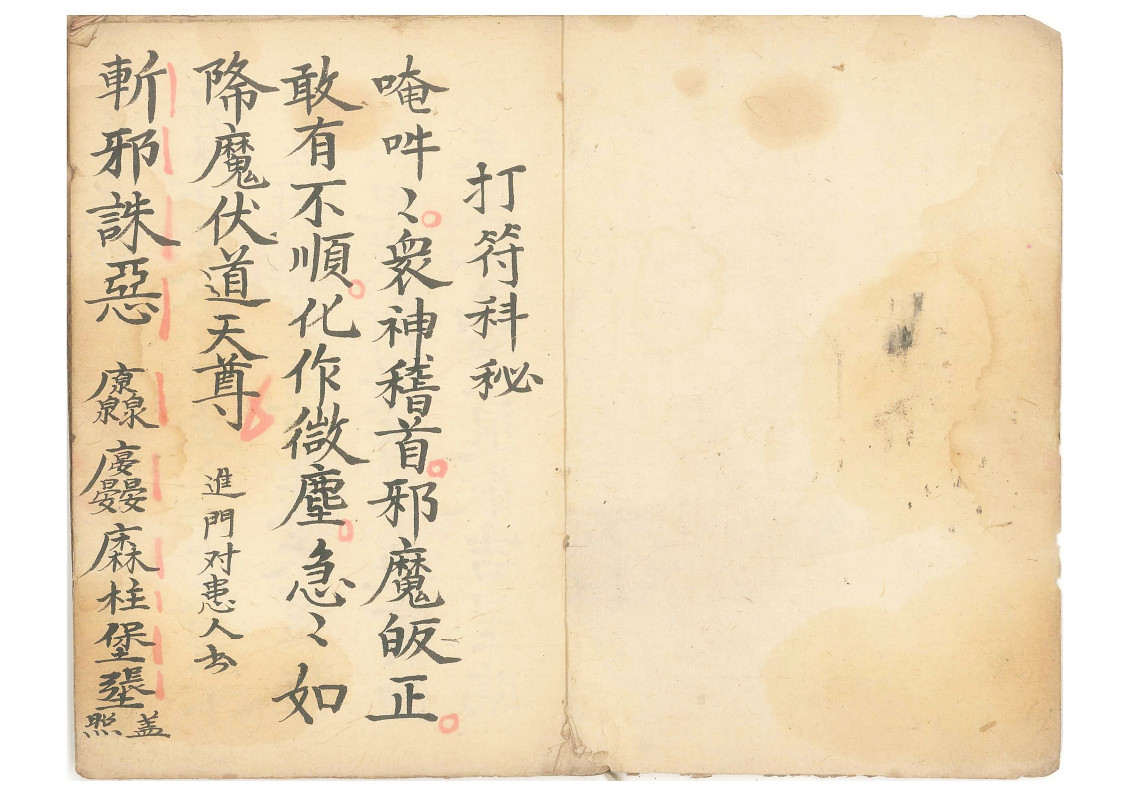 打符科秘
唵吽〻衆神稽首邪魔皈正
敢有不順化作微塵急〻如
降魔伏道天尊 進門对患人书
斬邪誅惡 柱堡
照盖